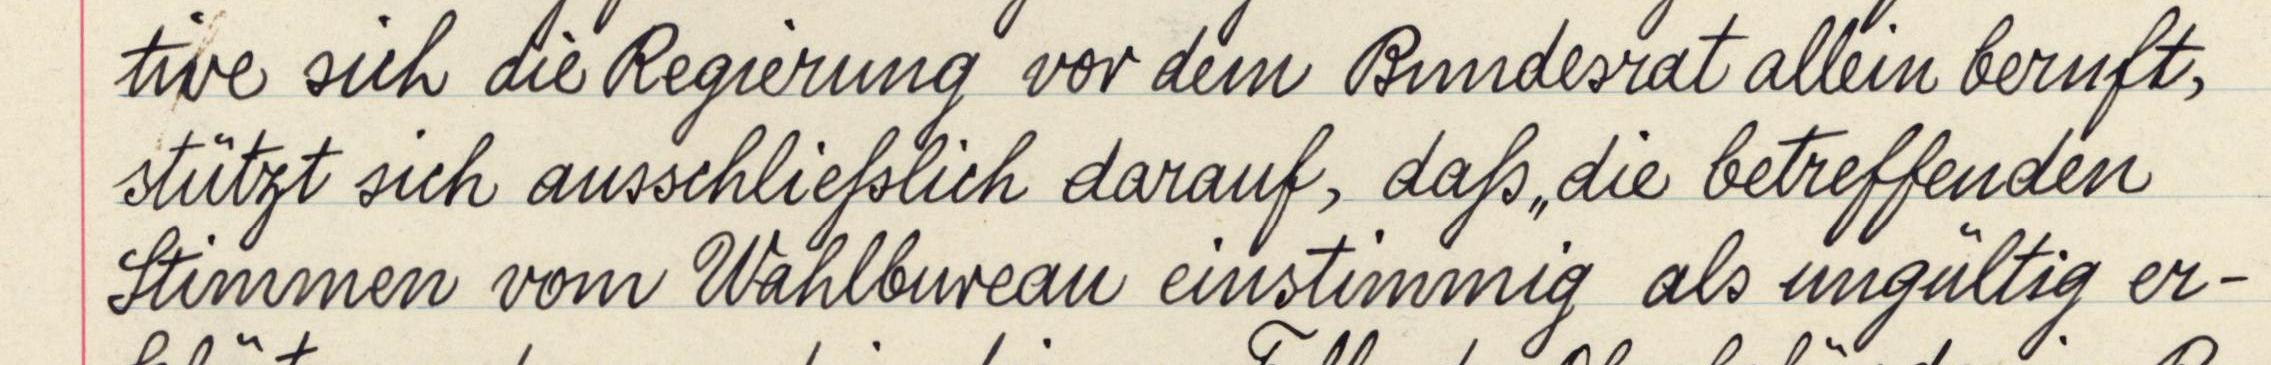 tive sich die Regierung vor dem Bundesrat allein beruft,
stützt sich ausschließlich darauf, daß „die betreffenden
Stimmen vom Wahlbureau einstimmig als ungültig er-